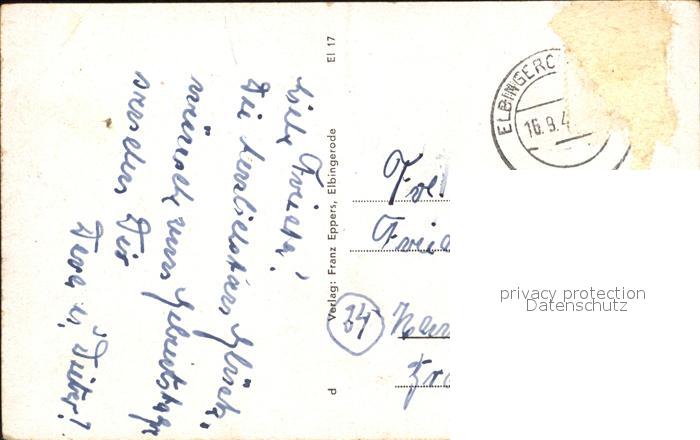 Liebe Frieda!
Die herzlichsten Glück-
wünsche zum Geburtstage
senden Dir
Vera u. Dieter!
El 17
Verlag: Franz Eppers, Elbingerode
d
ELBINGERO
16.9.4
Frl
Fried
24
privacy protection
Datenschutz